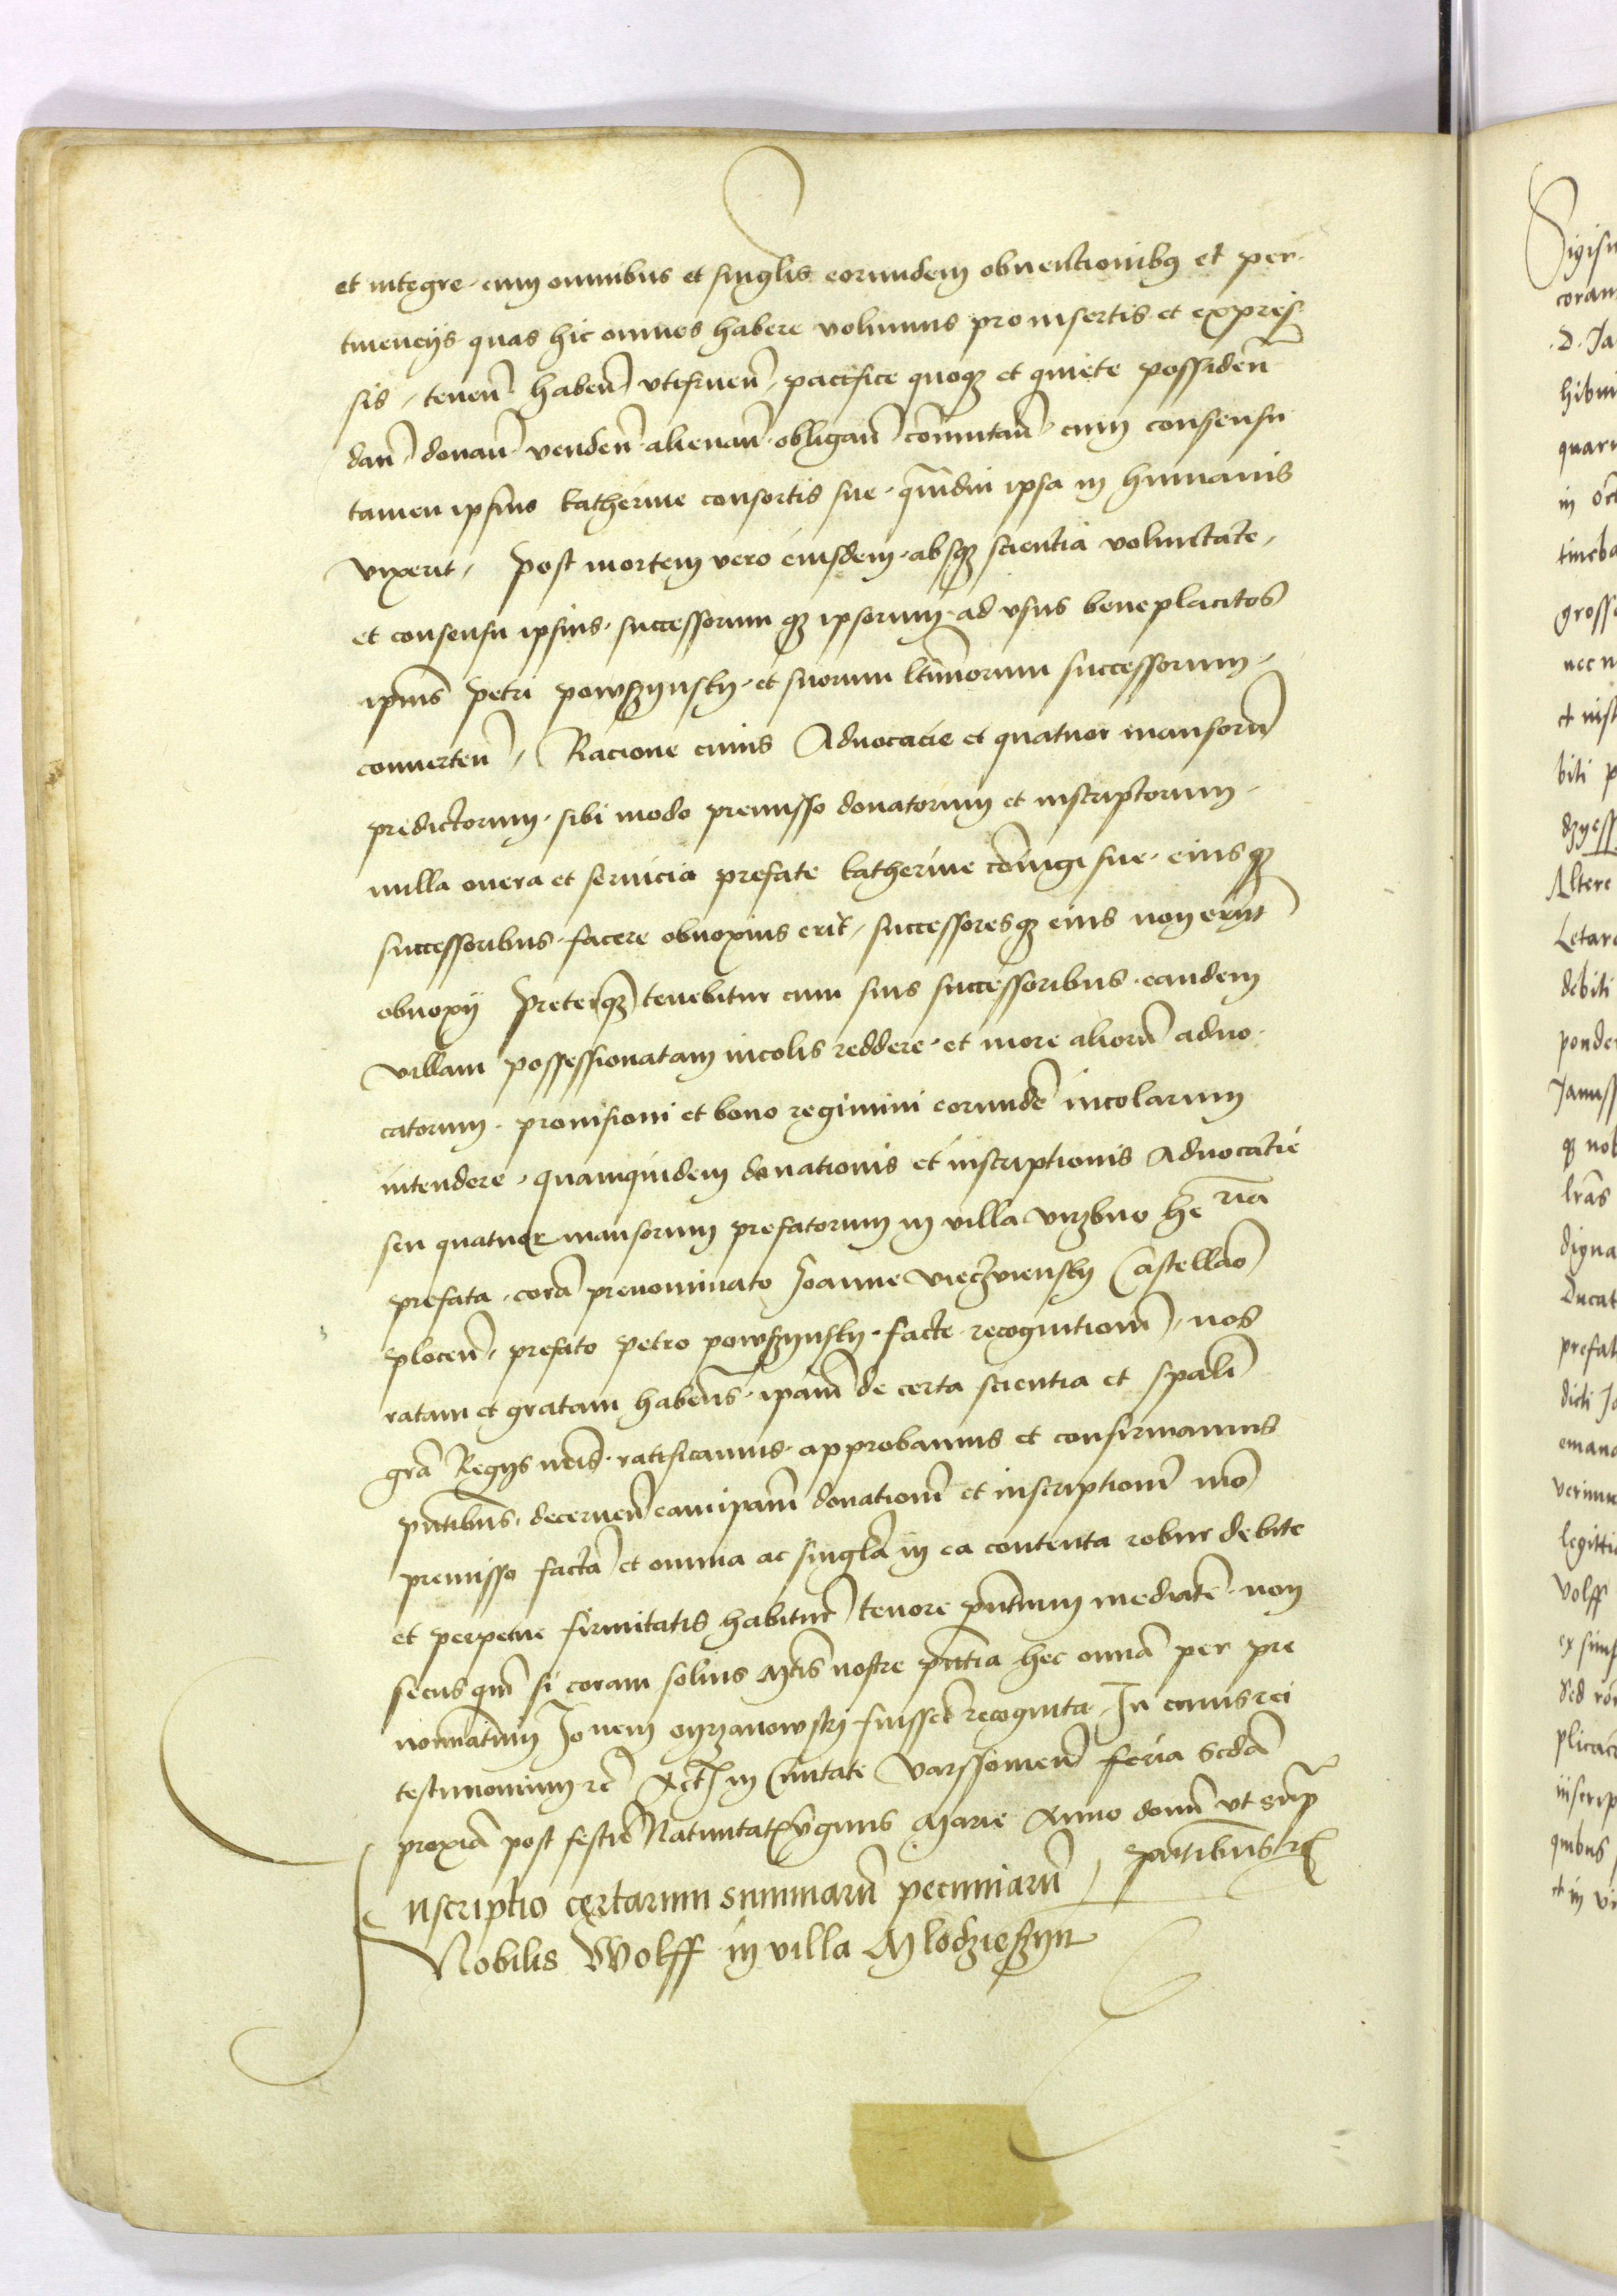 et integre cum omnibus et singlis eorundem obventionibus et per
tinencijs quas hic omnes habere volumus pro insertis et expres
sis, tenen̄ haben̄ utifruen̄, pacifice quoqȝ et quiete possiden̄
dan̄, donan̄ venden̄ alienan̄ obligan̄ cōmutan̄ cum consensu
tamen ipsius Katherine consortis sue, qm̄diu ipsa in humanis
vixerit, Post mortem vero eiusdem absqȝ scientia voluntate,
et consensu ipsius, successorum qȝ ipsorum ad usus beneplacitos
ipīus Petri powszynsky et suorum ltīmorum successorum
converten̄, Racione cuius Advocacie et quatuor mansorū
predictorum, sibi modo premisso donatorum et inscriptorum
nulla onera et servicia prefate Katherine cōiugi sue, eiusqȝ
successoribus facere obnoxius erit, successoresqȝ eius non erūt
obnoxij Preterqȝ tenebitur cum suis successoribus eandem
villam possessionatam incolis reddere, et more aliorū advo
catorum, provisioni et bono regimini eorundē incolarum
intendere, quamquidem donationis et inscriptionis Advocatie
seu quatuor mansorum prefatorum in villa Virzbno p̄r hēria
prefata, corā prenominato Joanne Vieczviensky Castellāo
plocen̄, prefato Petro powszynsky facte recognitionē, nos
ratam et gratam habens, ipām de certa scientia et spāli
grā Regijs nrīs ratificamus, approbamus et confirmamus
pn̄tibus, decernen̄ eamipām donationē et inscriptionē mō
premisso factā et omnia ac singlā in ea contenta robur debite
et perpetue firmitatis habiturū tenore pn̄tium mediāte, non
secus qm̄ si coram solius Mtīs nostre pn̄tia hec omīa per pre
nomīatum Jo nem Myrzanowsky fuissēt recognita, In cuius rei
testimonium rc̄ Act in Civitate Varssovien̄ feria Scdā
proxiā post festū Nativitatis vginis Marie Anno domī ut sup̄
pn̄tibus rc̄
Inscriptio certarum summarū pecuniarū
Nobilis Wolff in villa Mlodzieszyn